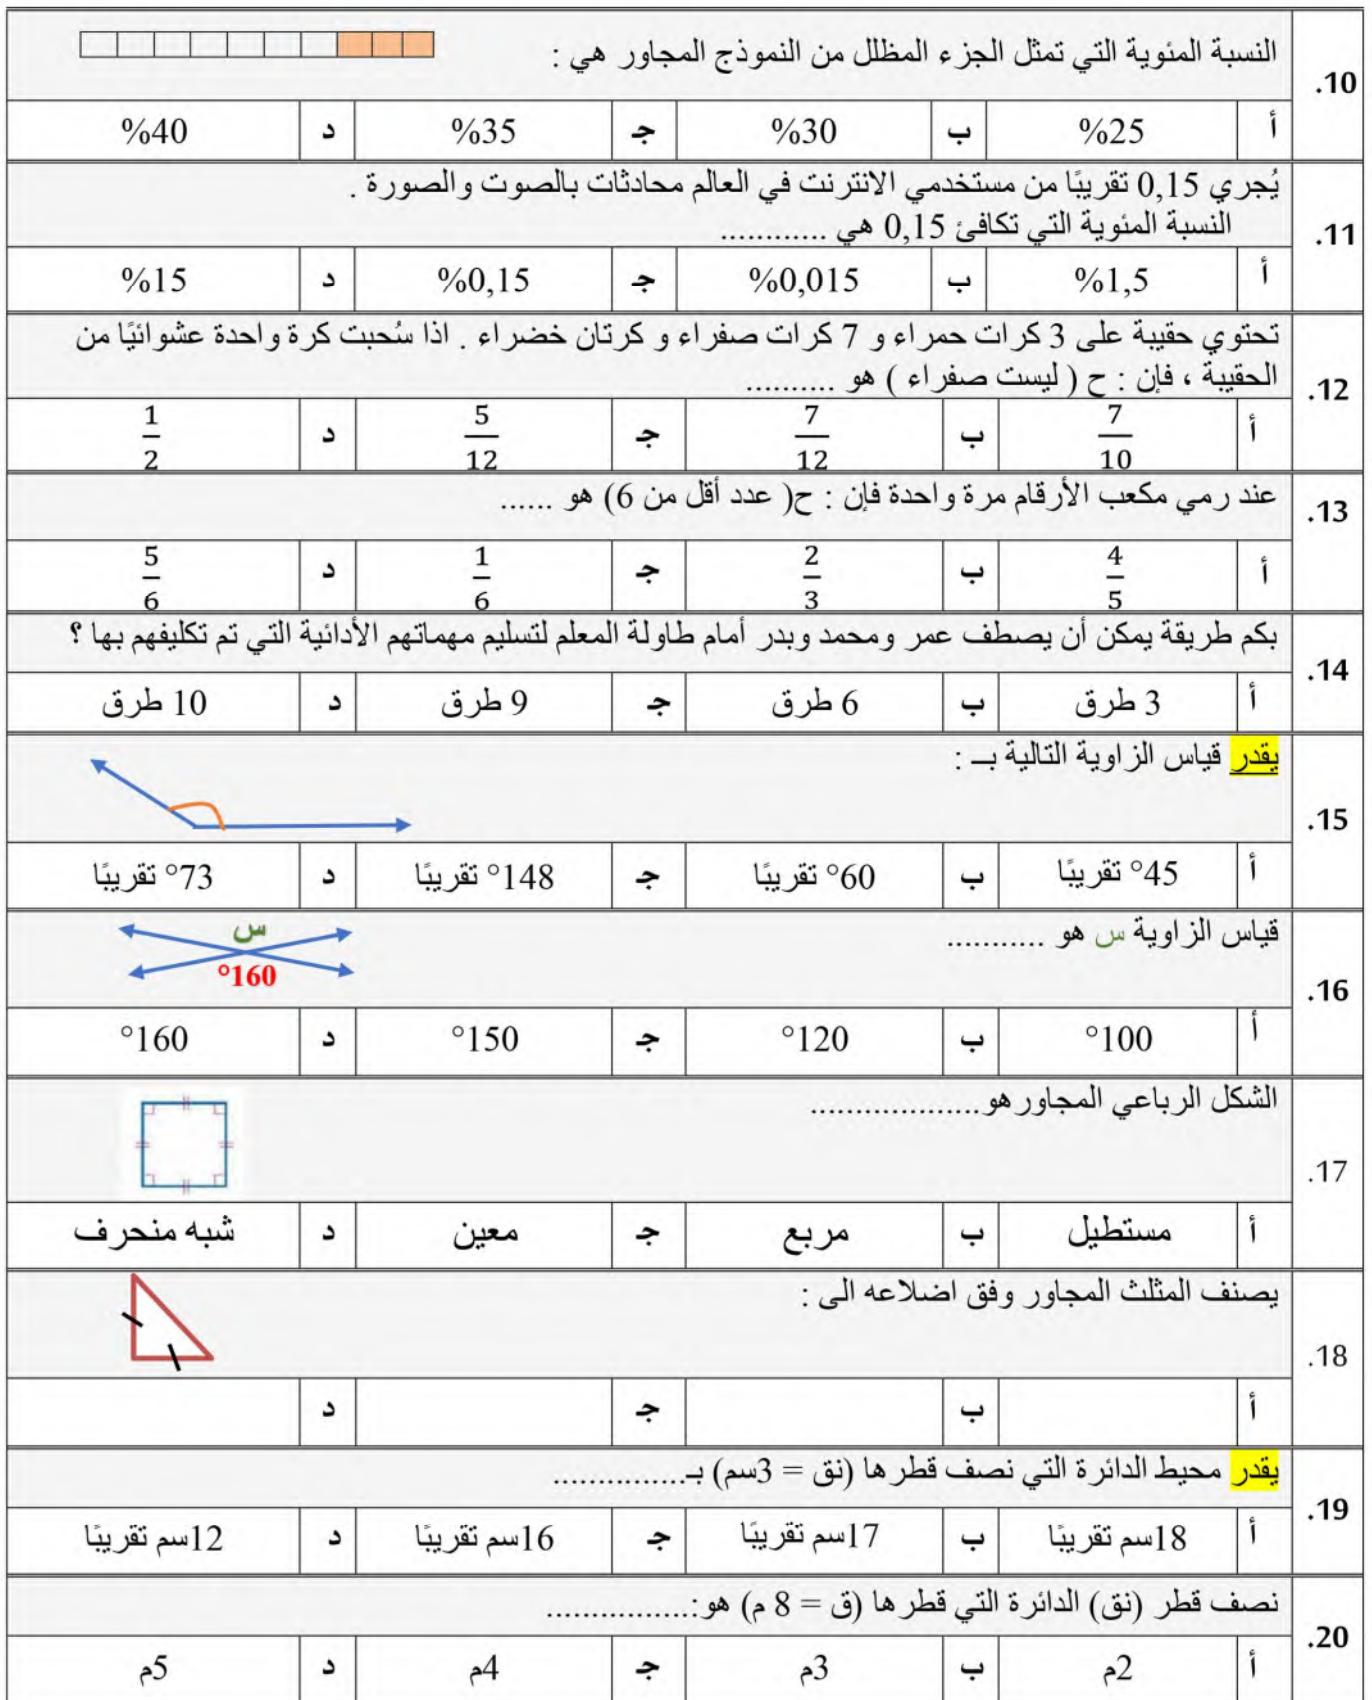 10. النسبة المئوية التي تمثل الجزء المظلل من النموذج المجاور هي :
أ %25 ب %30 جـ %35 د %40
11. يُجري 0,15 تقريبًا من مستخدمي الانترنت في العالم محادثات بالصوت والصورة .
النسبة المئوية التي تكافئ 0,15 هي ............
أ %1,5 ب %0,015 جـ %0,15 د %15
12. تحتوي حقيبة على 3 كرات حمراء و 7 كرات صفراء و كرتان خضراء . اذا سُحبت كرة واحدة عشوائيًا من
الحقيبة ، فإن : ح ( ليست صفراء ) هو ..........
أ 7/10 ب 7/12 جـ 5/12 د 1/2
13. عند رمي مكعب الأرقام مرة واحدة فإن : ح( عدد أقل من 6) هو ......
أ 4/5 ب 2/3 جـ 1/6 د 5/6
14. بكم طريقة يمكن أن يصطف عمر ومحمد وبدر أمام طاولة المعلم لتسليم مهماتهم الأدائية التي تم تكليفهم بها ؟
أ 3 طرق ب 6 طرق جـ 9 طرق د 10 طرق
15. يقدر قياس الزاوية التالية بــ :
أ 45° تقريبًا ب 60° تقريبًا جـ 148° تقريبًا د 73° تقريبًا
16. قياس الزاوية س هو ...........
س
160°
أ 100° ب 120° جـ 150° د 160°
17. الشكل الرباعي المجاورهو...................
أ مستطيل ب مربع جـ معين د شبه منحرف
18. يصنف المثلث المجاور وفق اضلاعه الى :
أ ب جـ د
19. يقدر محيط الدائرة التي نصف قطرها (نق = 3سم) بـ...............
أ 18سم تقريبًا ب 17سم تقريبًا جـ 16سم تقريبًا د 12سم تقريبًا
20. نصف قطر (نق) الدائرة التي قطرها (ق = 8 م) هو:................
أ 2م ب 3م جـ 4م د 5م